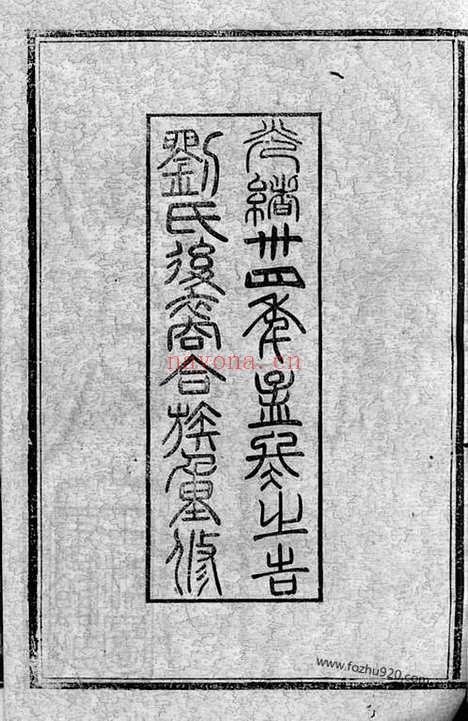 光緒卅四年孟冬之吉
劉氏後裔合族重修
nayona.cn
www.fozhu920.com